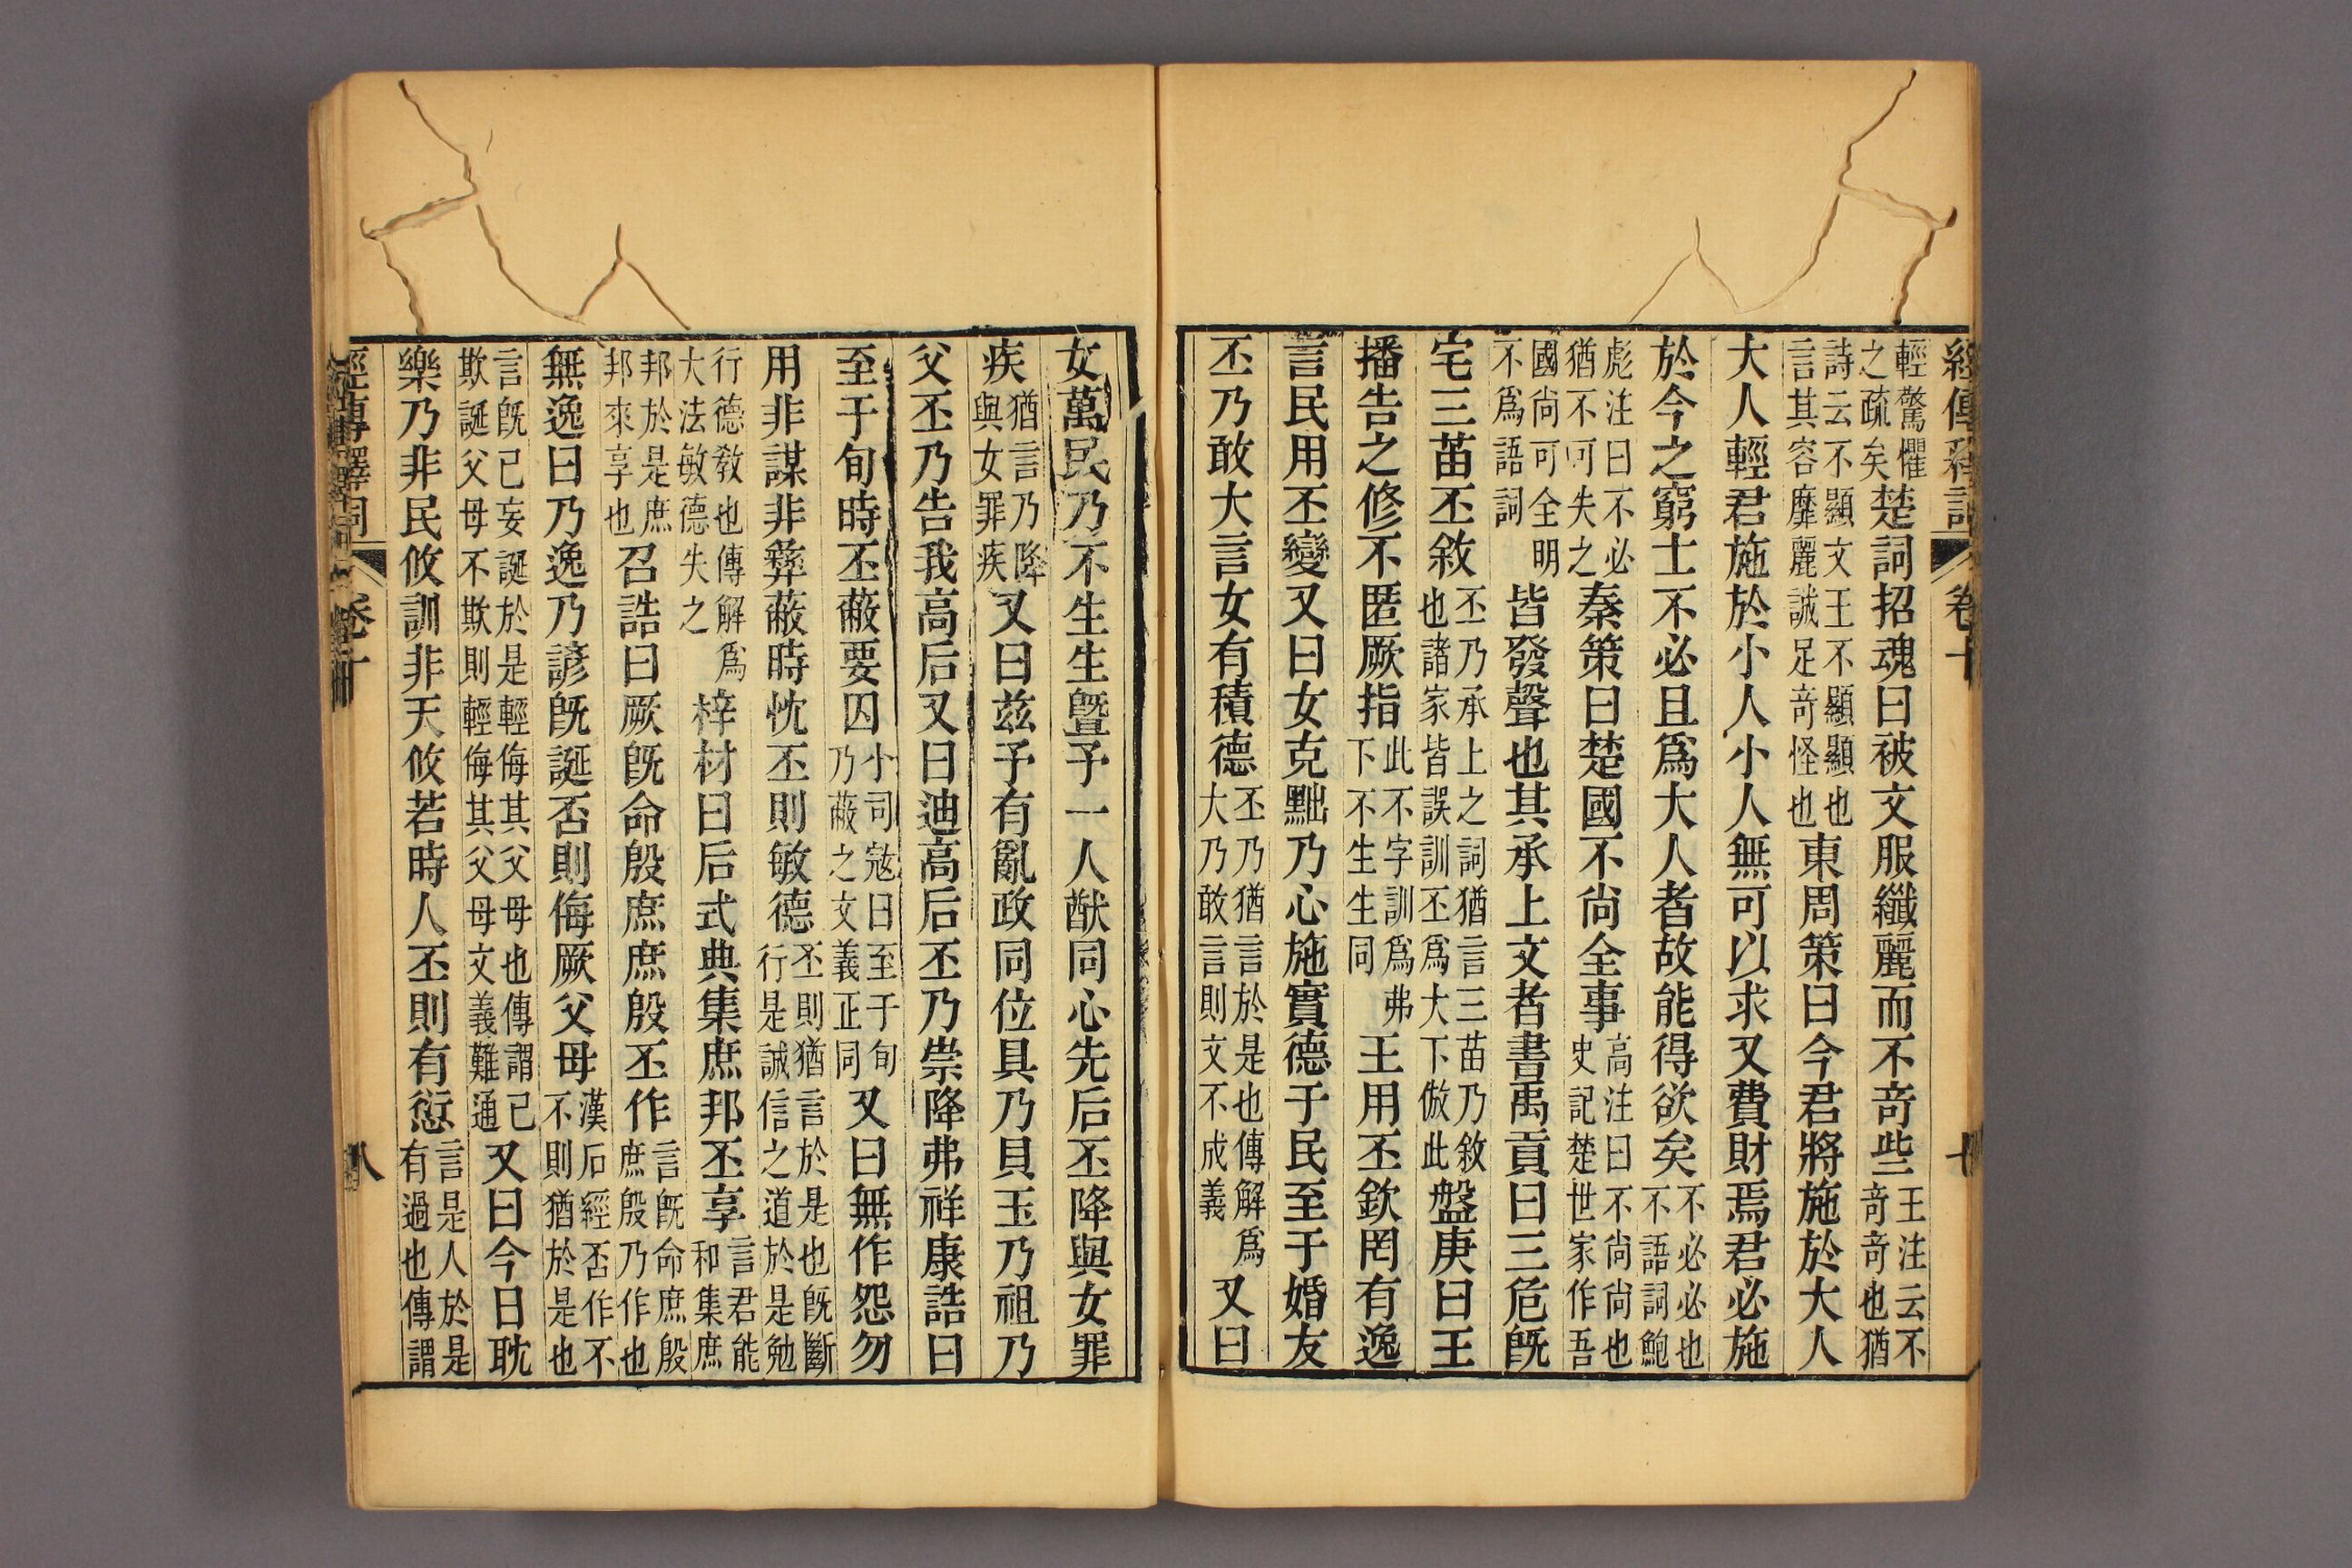 經傳釋詞 卷十 七
輕驚懼之疏矣楚詞招魂曰被文服纖麗而不奇些王注云不奇奇也猶
詩云不顯文王不顯顯也言其容靡麗誠足奇怪也東周策曰今君將施於大人
大人輕君施於小人小人無可以求又費財焉君必施
於今之窮士不必且爲大人者故能得欲矣不必必也不語詞鮑
彪注曰不必猶不可失之秦策曰楚國不尚全事高注曰不尚尚也史記楚世家作吾
國尚可全明不爲語詞皆發聲也其承上文者書禹貢曰三危旣
宅三苗丕敘丕乃承上之詞猶言三苗乃敘也諸家皆誤訓丕爲大下倣此盤庚曰王
播告之修不匿厥指此不字訓爲弗下不生生同王用丕欽罔有逸
言民用丕變又曰女克黜乃心施實德于民至于婚友
丕乃敢大言女有積德丕乃猶言於是也傳解爲大乃敢言則文不成義又曰
女萬民乃不生生曁予一人猷同心先后丕降與女罪
疾猶言乃降與女罪疾又曰茲予有亂政同位具乃貝玉乃祖乃
父丕乃告我高后又曰迪高后丕乃崇降弗祥康誥曰
至于旬時丕蔽要囚小司寇曰至于旬乃蔽之文義正同又曰無作怨勿
用非謀非彝蔽時忱丕則敏德丕則猶言於是也旣斷行是誠信之道於是勉
行德敎也傳解爲大法敏德失之梓材曰后式典集庶邦丕享言君能和集庶
邦於是庶邦來享也召誥曰厥旣命殷庶庶殷丕作言旣命庶殷庶殷乃作也
無逸曰乃逸乃諺旣誕否則侮厥父母漢石經否作不不則猶於是也
言旣已妄誕於是輕侮其父母也傳謂已欺誕父母不欺則輕侮其父母文義難通又曰今日耽
樂乃非民攸訓非天攸若時人丕則有愆言是人於是有過也傳謂
經傳釋詞 卷十 八